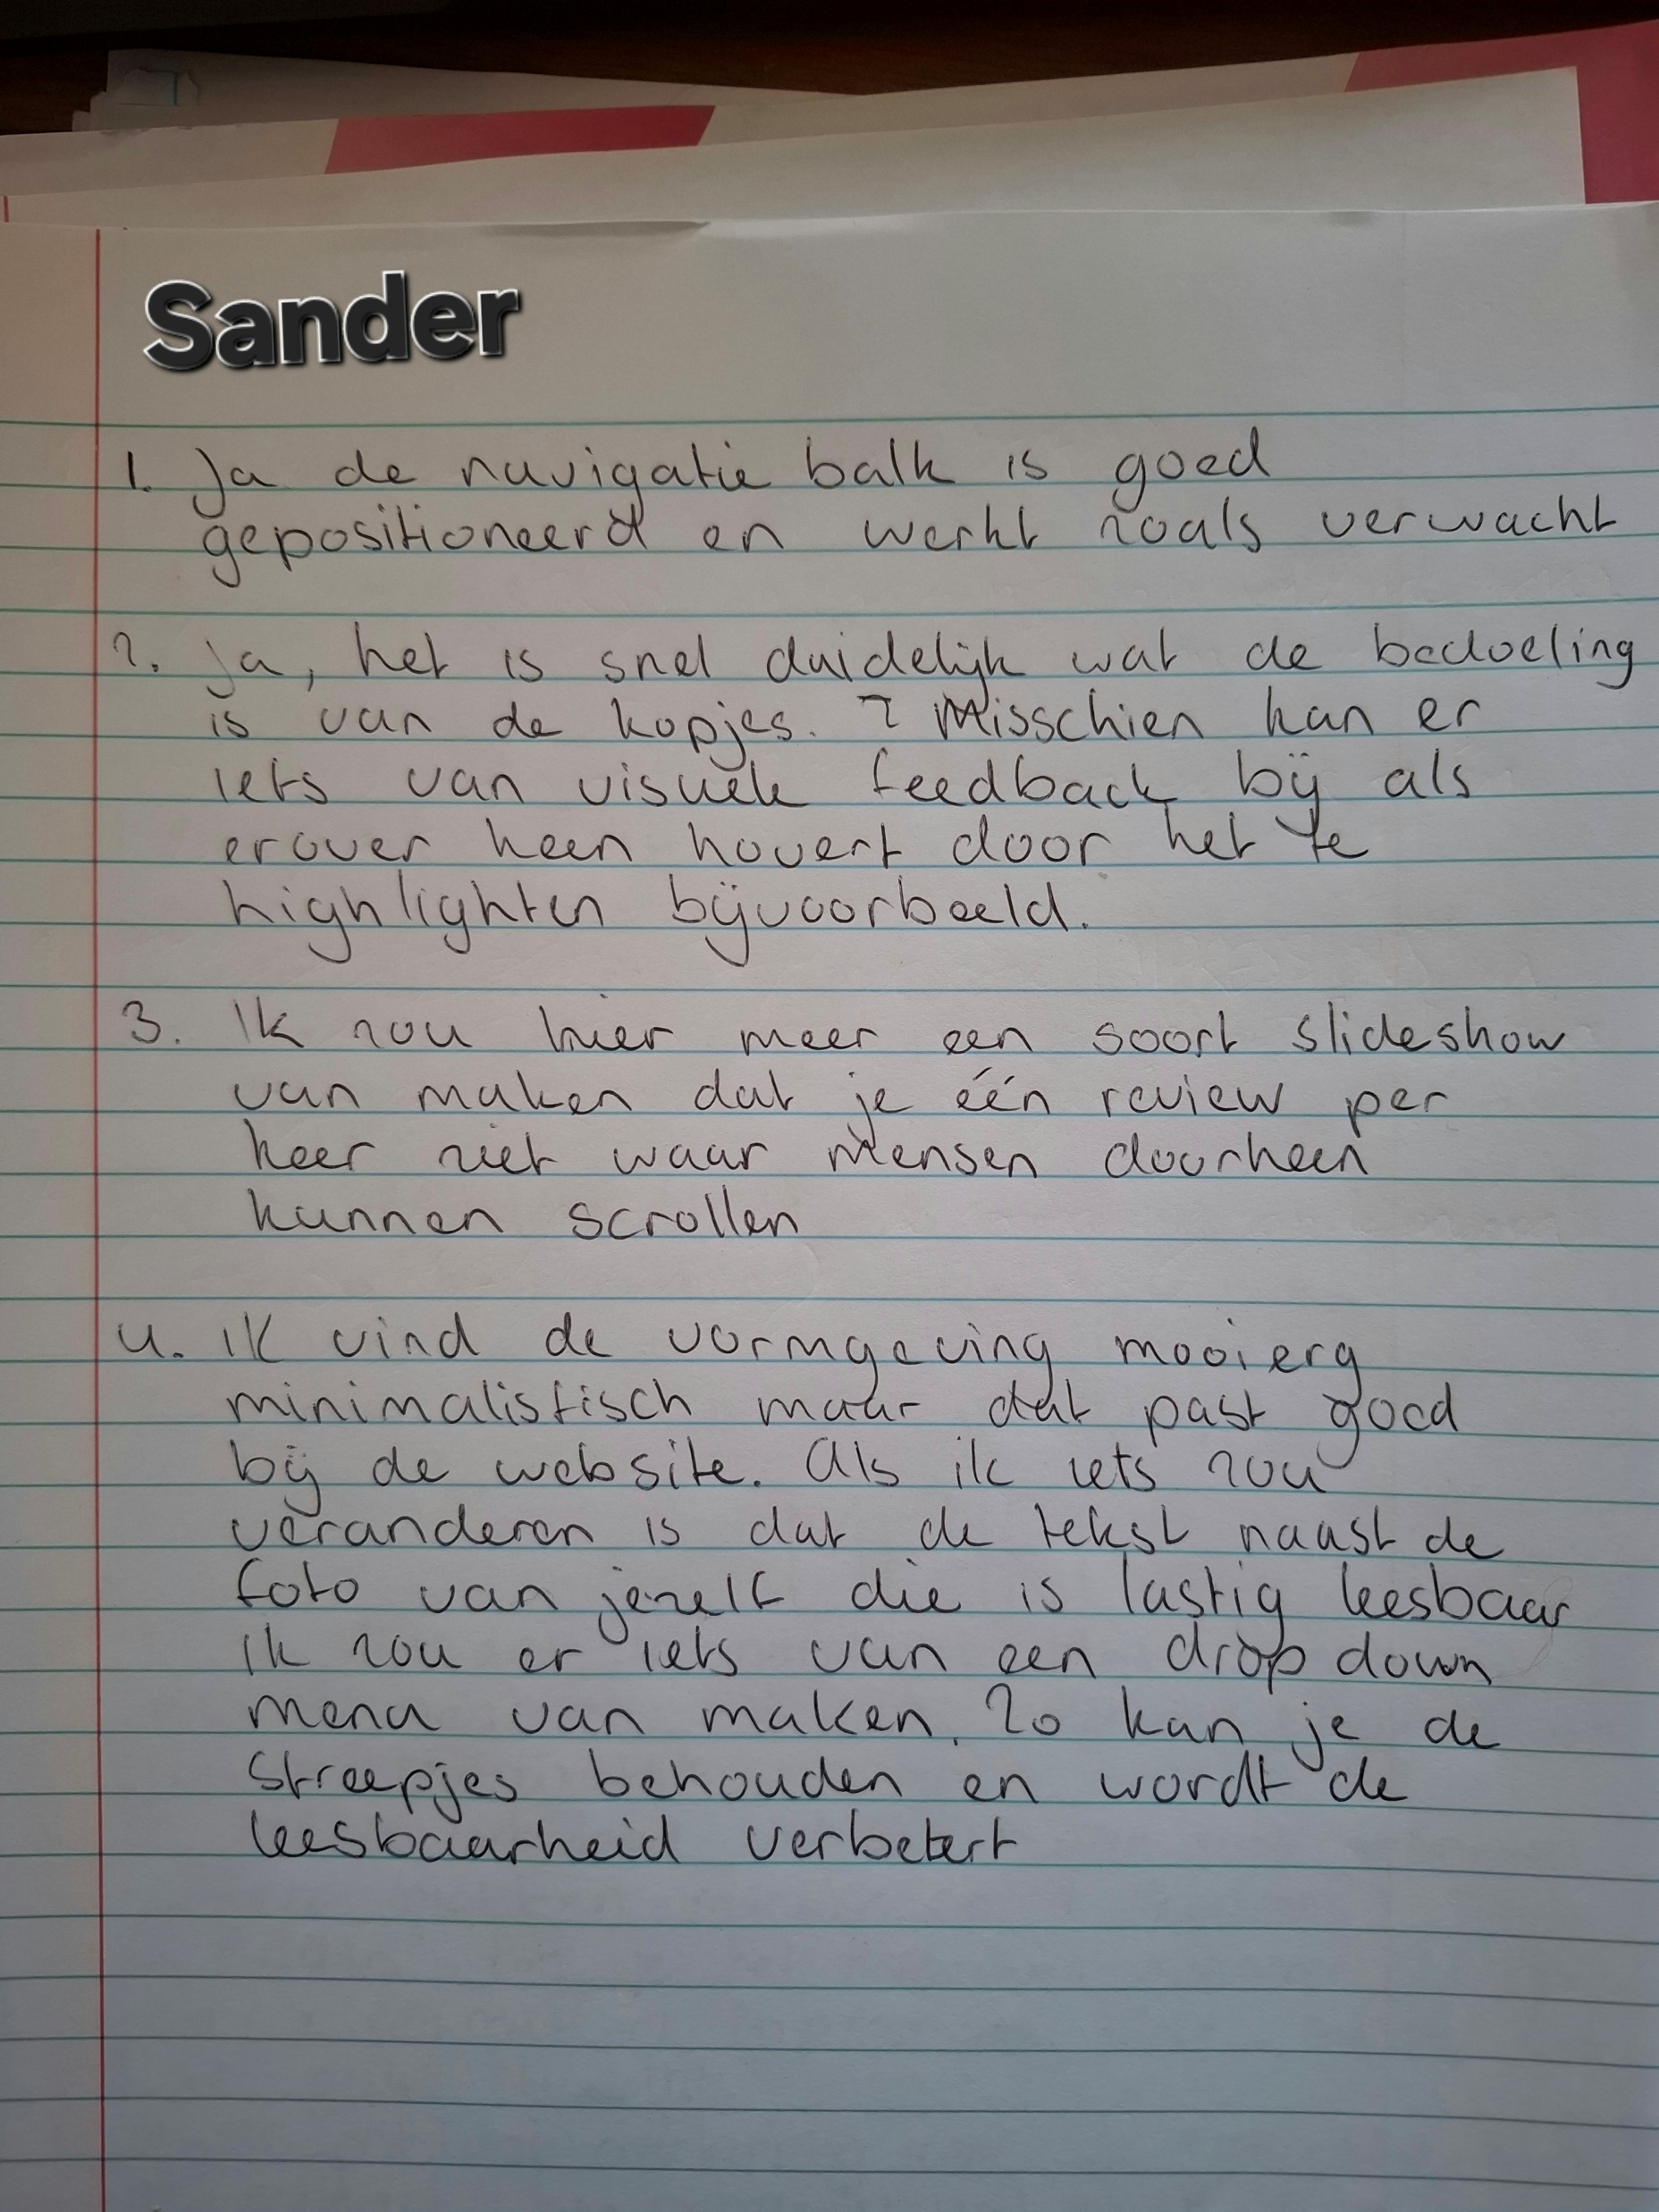 Sander
1. Ja de navigatie balk is goed
gepositioneerd en werkt zoals verwacht
2. Ja, het is snel duidelijk wat de bedoeling
is van de kopjes. Misschien kan er
iets van visuele feedback bij als
erover heen hovert door het te
highlighten bijvoorbeeld.
3. Ik zou hier meer een soort slideshow
van maken dat je één review per
keer ziet waar mensen doorheen
kunnen scrollen
4. Ik vind de vormgeving mooi erg
minimalistisch maar dat past goed
bij de website. Als ik iets zou
veranderen is dat de tekst naast de
foto van jezelf die is lastig leesbaar
ik zou er iets van een drop down
menu van maken. Zo kan je de
streepjes behouden en wordt de
leesbaarheid verbetert